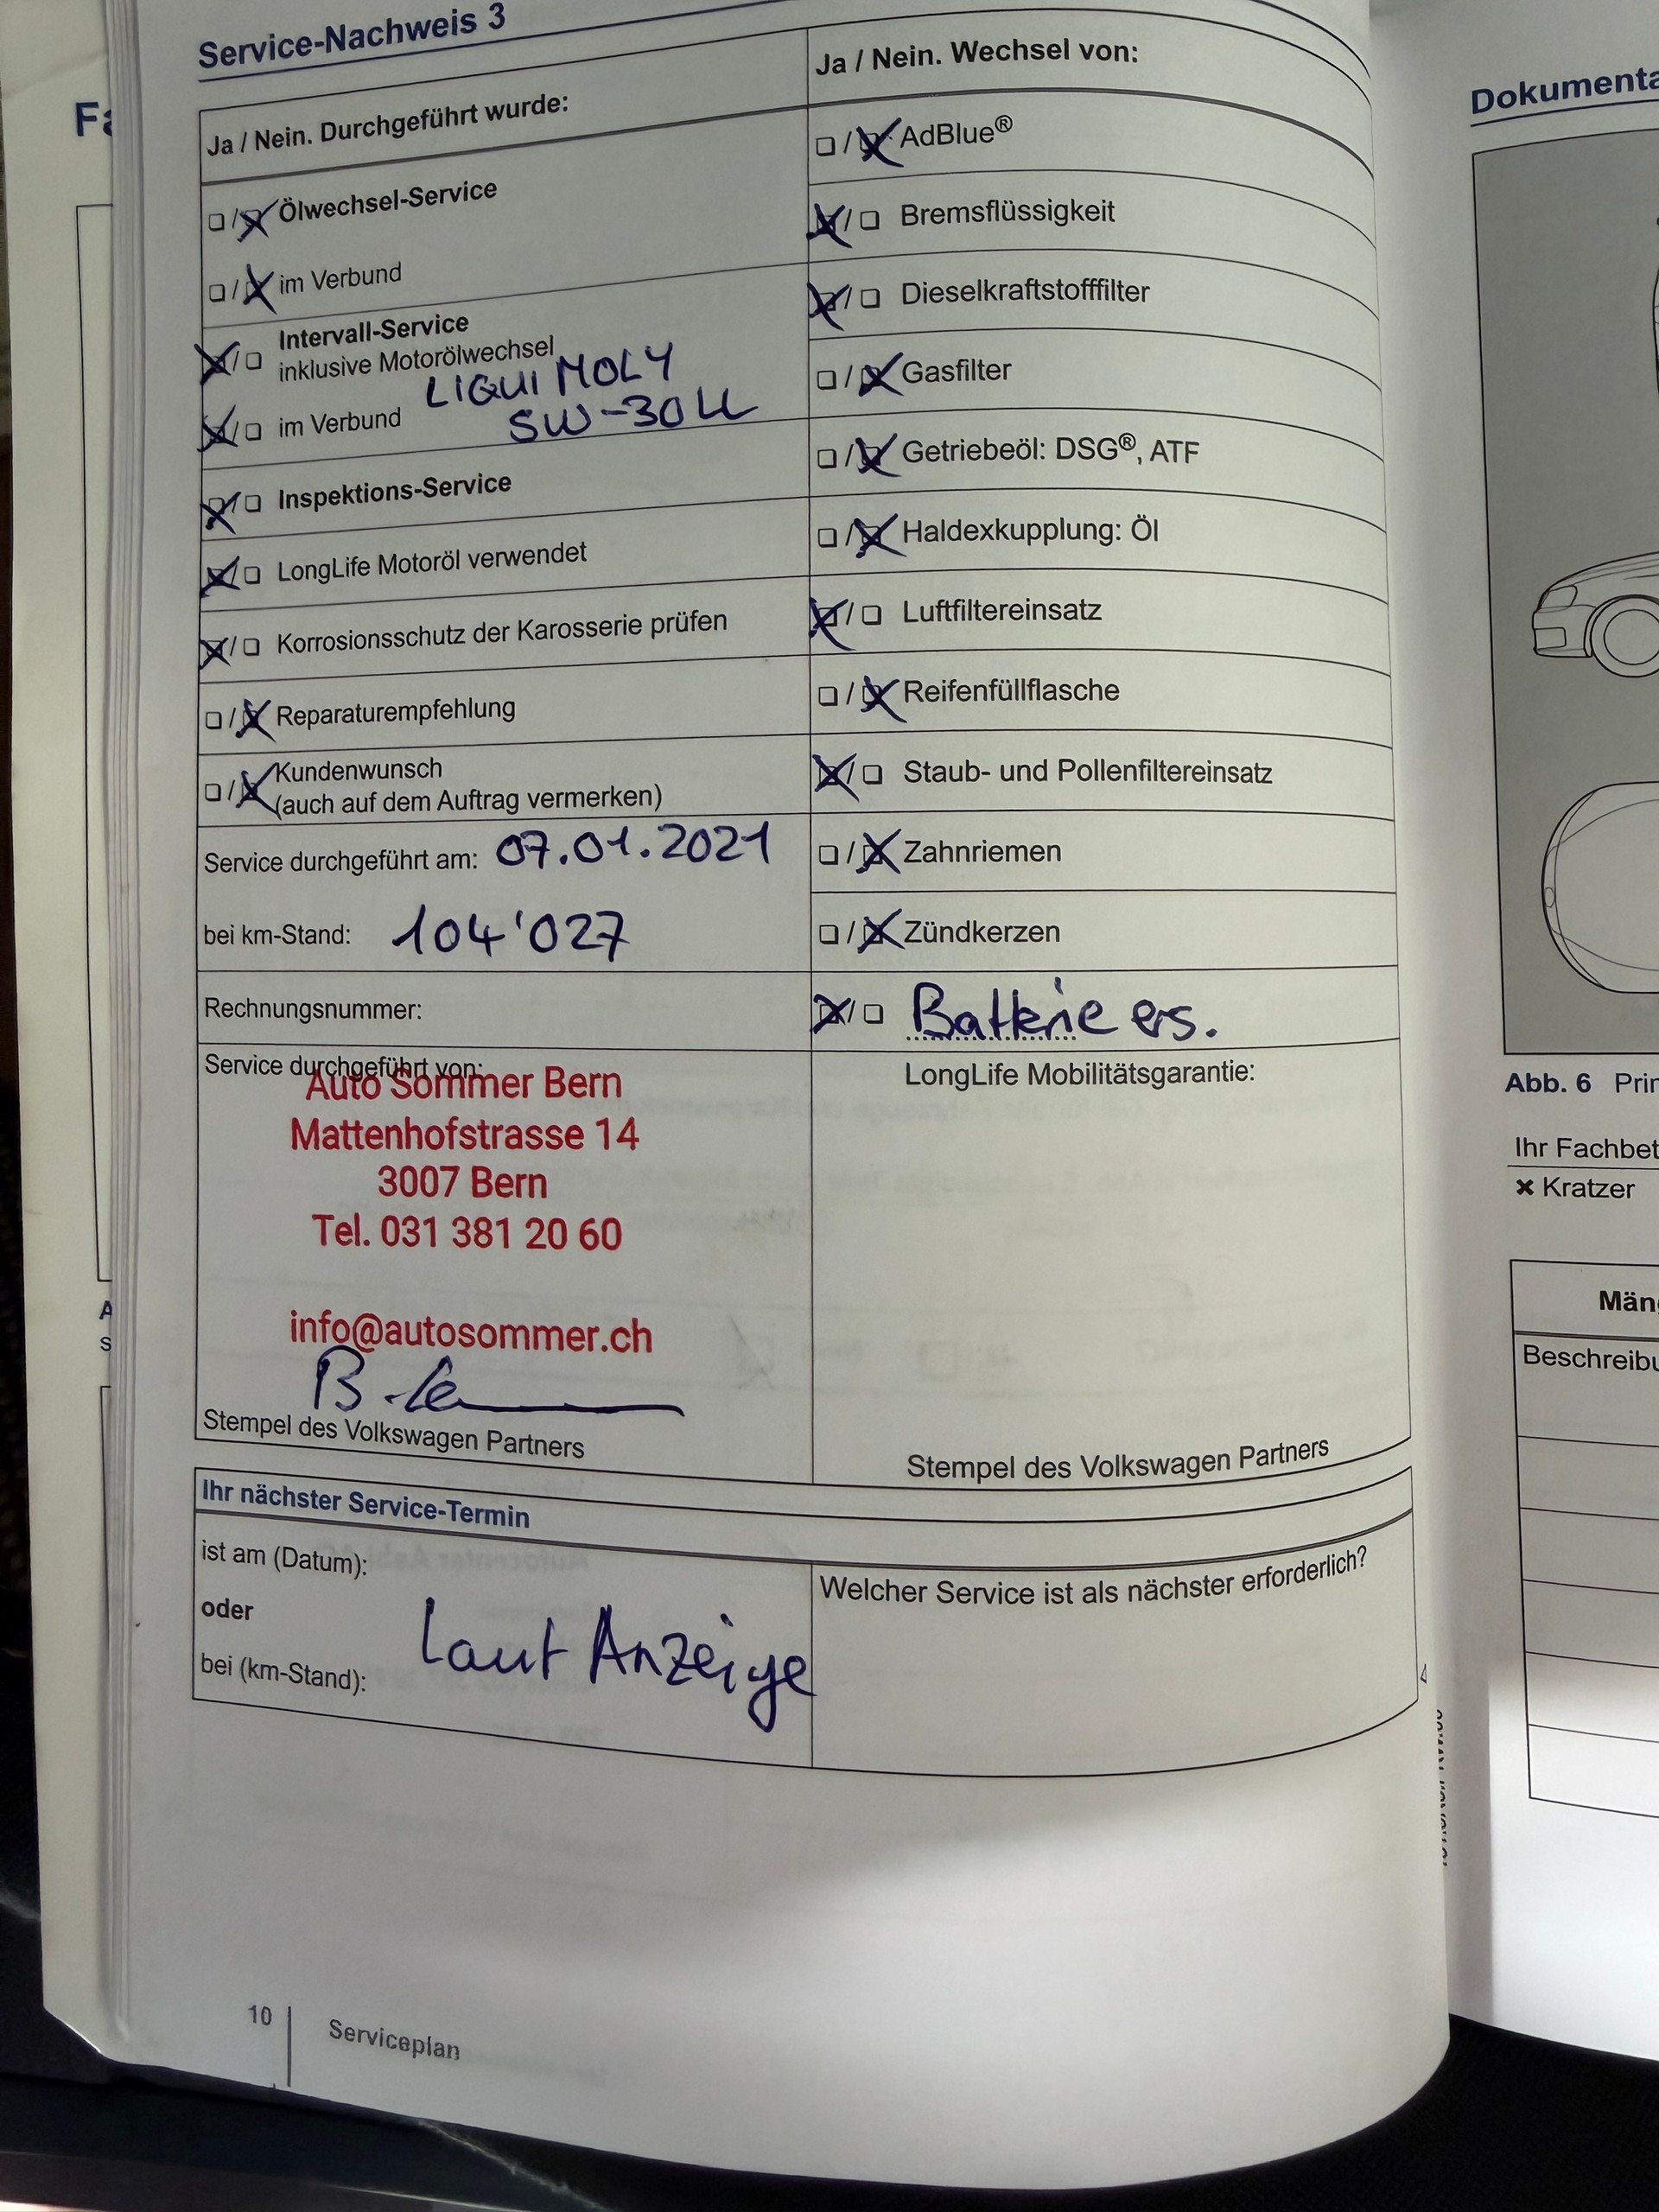 Service-Nachweis 3
Ja / Nein. Durchgeführt wurde:
Ölwechsel-Service
im Verbund
Intervall-Service
inklusive Motorölwechsel
LIQUI MOLY
im Verbund
5W-30 LL
Inspektions-Service
LongLife Motoröl verwendet
Korrosionsschutz der Karosserie prüfen
Reparaturempfehlung
Kundenwunsch
(auch auf dem Auftrag vermerken)
Service durchgeführt am: 07.01.2021
bei km-Stand: 104'027
Rechnungsnummer:
Service durchgeführt von:
Auto Sommer Bern
Mattenhofstrasse 14
3007 Bern
Tel. 031 381 20 60
info@autosommer.ch
Stempel des Volkswagen Partners
Ja / Nein. Wechsel von:
AdBlue®
Bremsflüssigkeit
Dieselkraftstofffilter
Gasfilter
Getriebeöl: DSG®, ATF
Haldexkupplung: Öl
Luftfiltereinsatz
Reifenfüllflasche
Staub- und Pollenfiltereinsatz
Zahnriemen
Zündkerzen
Batterie ers.
LongLife Mobilitätsgarantie:
Stempel des Volkswagen Partners
Ihr nächster Service-Termin
ist am (Datum):
oder
bei (km-Stand):
laut Anzeige
Welcher Service ist als nächster erforderlich?
10
Serviceplan
Abb. 6
✖ Kratzer